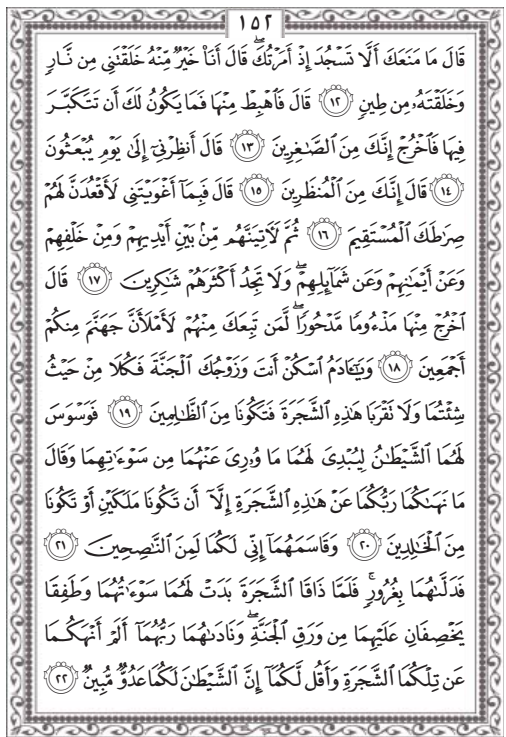 ١٥٢
قَالَ مَا مَنَعَكَ أَلَّا تَسْجُدَ إِذْ أَمَرْتُكَۖ قَالَ أَنَا۠ خَيْرٌ مِّنْهُ خَلَقْتَنِى مِن نَّارٍ
وَخَلَقْتَهُۥ مِن طِينٍ ١٢ قَالَ فَٱهْبِطْ مِنْهَا فَمَا يَكُونُ لَكَ أَن تَتَكَبَّرَ
فِيهَا فَٱخْرُجْ إِنَّكَ مِنَ ٱلصَّٰغِرِينَ ١٣ قَالَ أَنظِرْنِىٓ إِلَىٰ يَوْمِ يُبْعَثُونَ
١٤ قَالَ إِنَّكَ مِنَ ٱلْمُنظَرِينَ ١٥ قَالَ فَبِمَآ أَغْوَيْتَنِى لَأَقْعُدَنَّ لَهُمْ
صِرَٰطَكَ ٱلْمُسْتَقِيمَ ١٦ ثُمَّ لَأٓتِيَنَّهُم مِّنۢ بَيْنِ أَيْدِيهِمْ وَمِنْ خَلْفِهِمْ
وَعَنْ أَيْمَٰنِهِمْ وَعَن شَمَآئِلِهِمْۖ وَلَا تَجِدُ أَكْثَرَهُمْ شَٰكِرِينَ ١٧ قَالَ
ٱخْرُجْ مِنْهَا مَذْءُومًا مَّدْحُورًاۖ لَّمَن تَبِعَكَ مِنْهُمْ لَأَمْلَأَنَّ جَهَنَّمَ مِنكُمْ
أَجْمَعِينَ ١٨ وَيَٰٓـَٔادَمُ ٱسْكُنْ أَنتَ وَزَوْجُكَ ٱلْجَنَّةَ فَكُلَا مِنْ حَيْثُ
شِئْتُمَا وَلَا تَقْرَبَا هَٰذِهِ ٱلشَّجَرَةَ فَتَكُونَا مِنَ ٱلظَّٰلِمِينَ ١٩ فَوَسْوَسَ
لَهُمَا ٱلشَّيْطَٰنُ لِيُبْدِىَ لَهُمَا مَا وُۥرِىَ عَنْهُمَا مِن سَوْءَٰتِهِمَا وَقَالَ
مَا نَهَىٰكُمَا رَبُّكُمَا عَنْ هَٰذِهِ ٱلشَّجَرَةِ إِلَّآ أَن تَكُونَا مَلَكَيْنِ أَوْ تَكُونَا
مِنَ ٱلْخَٰلِدِينَ ٢٠ وَقَاسَمَهُمَآ إِنِّى لَكُمَا لَمِنَ ٱلنَّٰصِحِينَ ٢١
فَدَلَّىٰهُمَا بِغُرُورٍۚ فَلَمَّا ذَاقَا ٱلشَّجَرَةَ بَدَتْ لَهُمَا سَوْءَٰتُهُمَا وَطَفِقَا
يَخْصِفَانِ عَلَيْهِمَا مِن وَرَقِ ٱلْجَنَّةِۖ وَنَادَىٰهُمَا رَبُّهُمَآ أَلَمْ أَنْهَكُمَا
عَن تِلْكُمَا ٱلشَّجَرَةِ وَأَقُل لَّكُمَآ إِنَّ ٱلشَّيْطَٰنَ لَكُمَا عَدُوٌّ مُّبِينٌ ٢٢